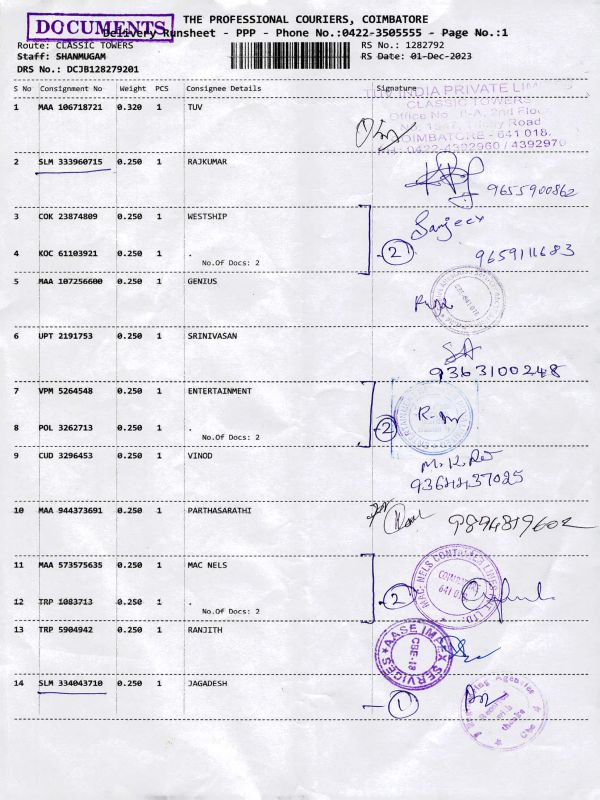 DOCUMENTS
THE PROFESSIONAL COURIERS, COIMBATORE
Delivery Runsheet - PPP - Phone No.:0422-3505555 - Page No.:1
Route: CLASSIC TOWERS RS No.: 1282792
Staff: SHANMUGAM RS Date: 01-Dec-2023
DRS No.: DCJB128279201
S No Consignment No Weight PCS Consignee Details Signature
INDIA PRIVATE LIM
CLASSIC TOWERS
1 MAA 106718721 0.320 1 TUV
Office No. II-A, 2nd Floo
Road
COIMBATORE - 641 018.
0422-4322960 / 4392970
2 SLM 333960715 0.250 1 RAJKUMAR
9655900862
3 COK 23874809 0.250 1 WESTSHIP
Sanjeev
4 KOC 61103921 0.250 1 . 2 9659111683
No.Of Docs: 2
5 MAA 107256600 0.250 1 GENIUS
6 UPT 2191753 0.250 1 SRINIVASAN
9363100248
7 VPM 5264548 0.250 1 ENTERTAINMENT
8 POL 3262713 0.250 1 . 2
No.Of Docs: 2
9 CUD 3296453 0.250 1 VINOD
9364437025
10 MAA 944373691 0.250 1 PARTHASARATHI
9894819602
11 MAA 573575635 0.250 1 MAC NELS
MAC-NELS CONTAINER LINES PVT. LTD.
12 TRP 1083713 0.250 1 . 2
No.Of Docs: 2
13 TRP 5904942 0.250 1 RANJITH
AASE IMAEX SERVICES
CBE-18
14 SLM 334043710 0.250 1 JAGADESH
1
Received
with
thanks